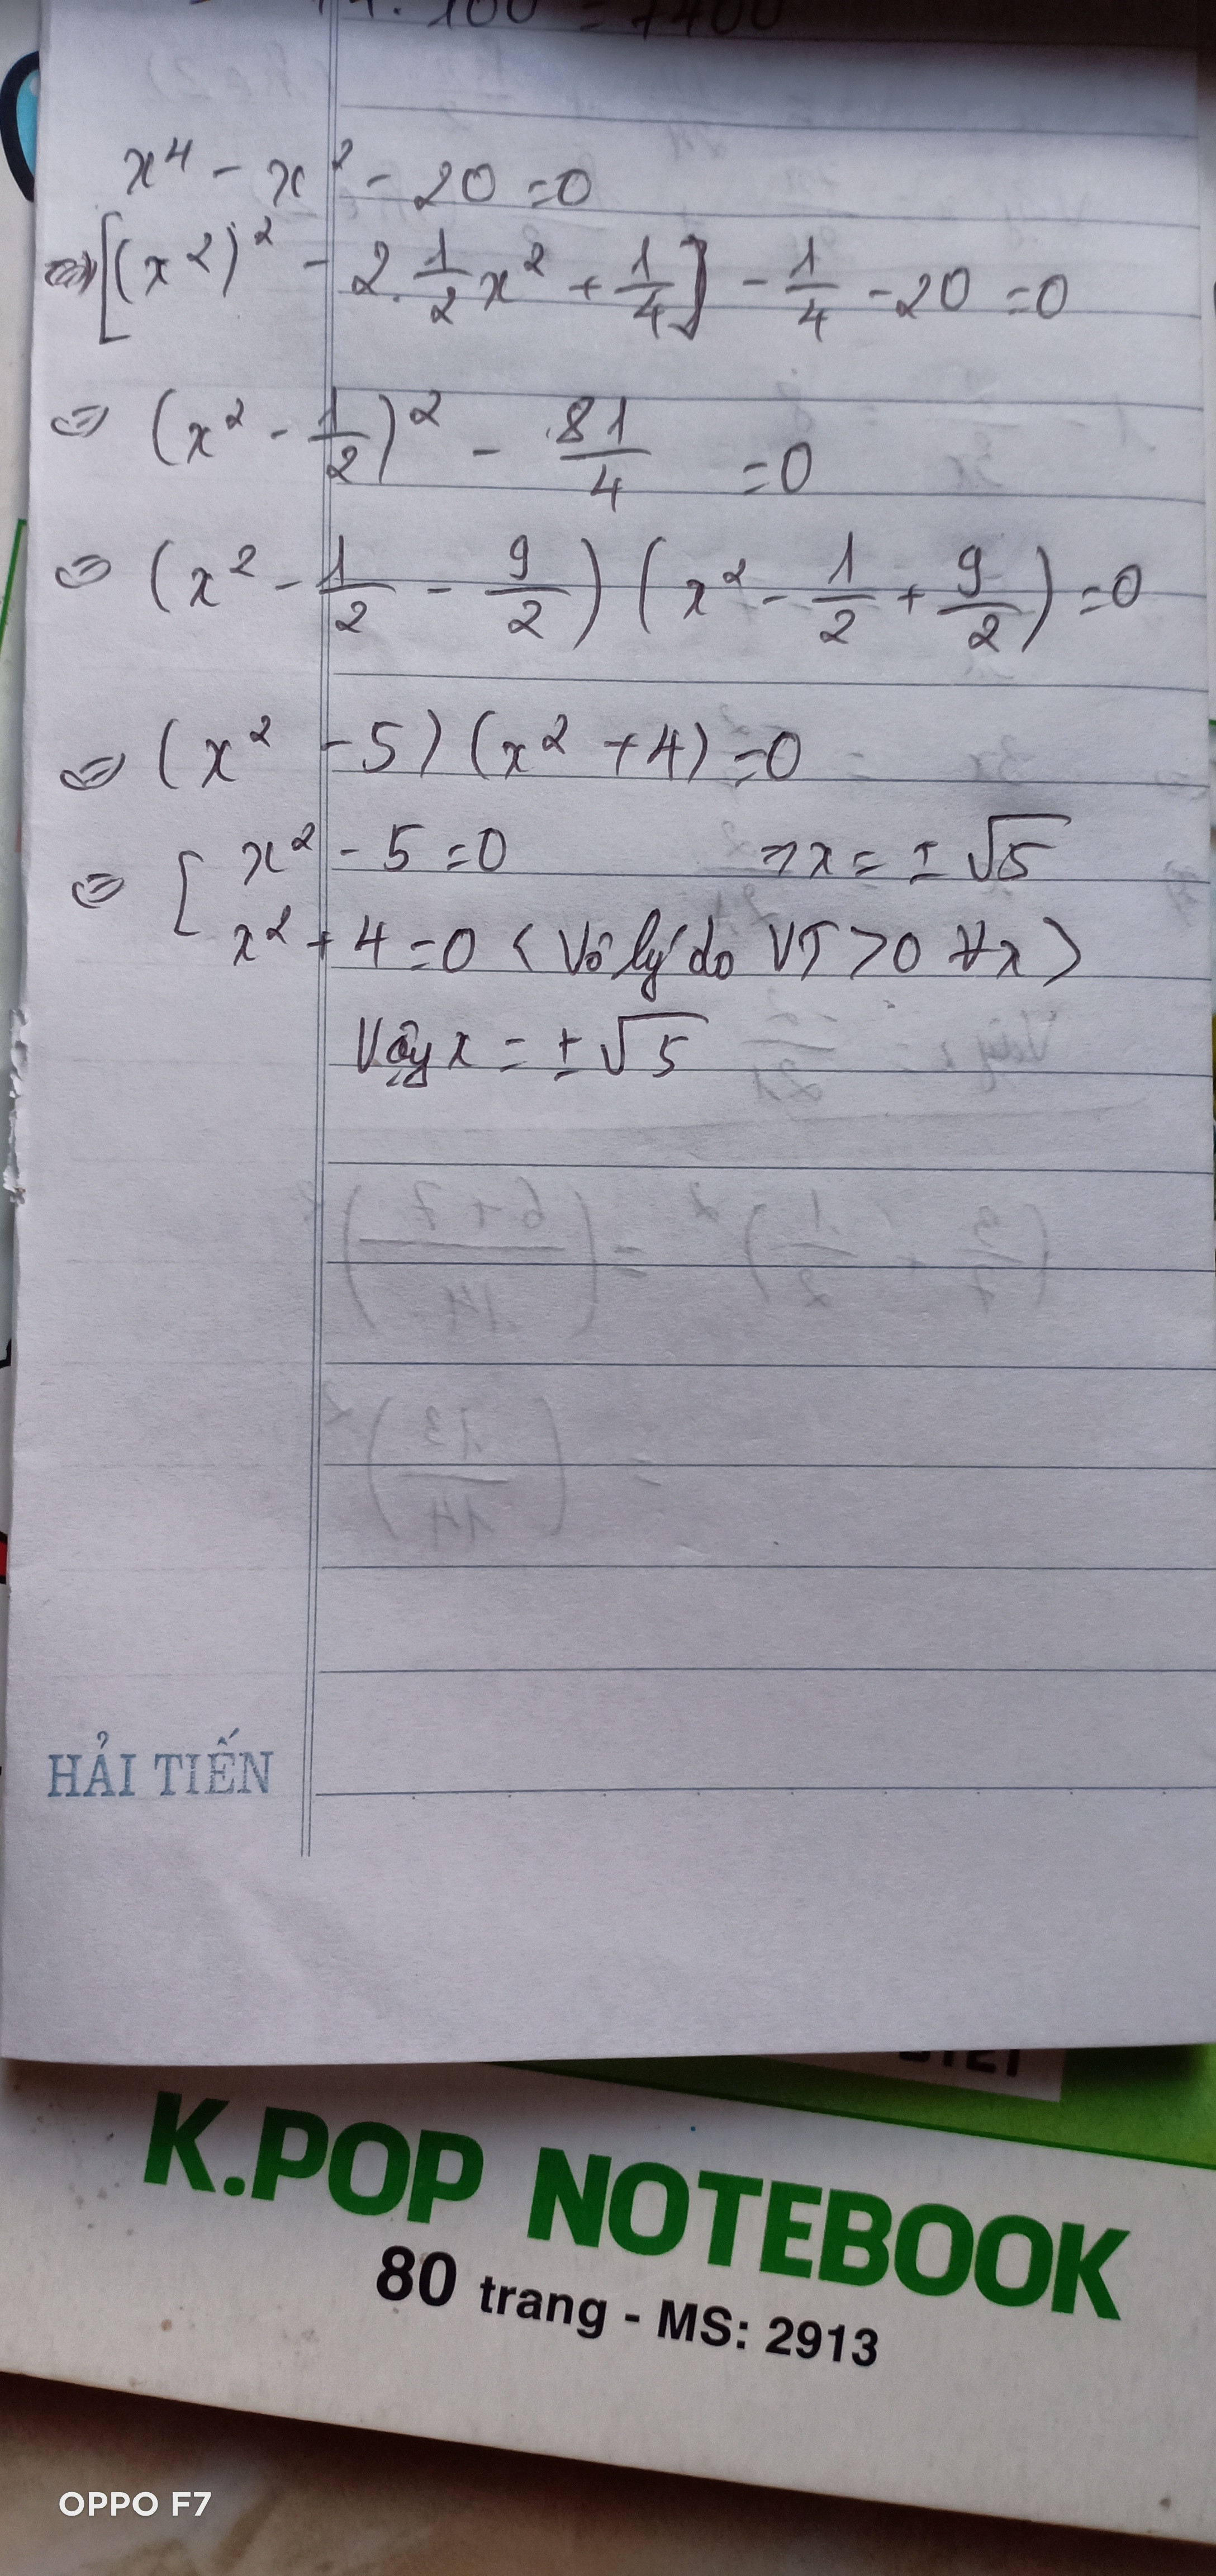 100 = 7400
x⁴ - x² - 20 = 0
⇔ [(x²)² - 2. 1/2 x² + 1/4] - 1/4 - 20 = 0
⇔ (x² - 1/2)² - 81/4 = 0
⇔ (x² - 1/2 - 9/2) (x² - 1/2 + 9/2) = 0
⇔ (x² - 5) (x² + 4) = 0
⇔ [ x² - 5 = 0 ⇒ x = ± √5
x² + 4 = 0 < Vô lý do VT > 0 ∀x >
Vậy x = ± √5
HẢI TIẾN
K.POP NOTEBOOK
80 trang - MS: 2913
OPPO F7